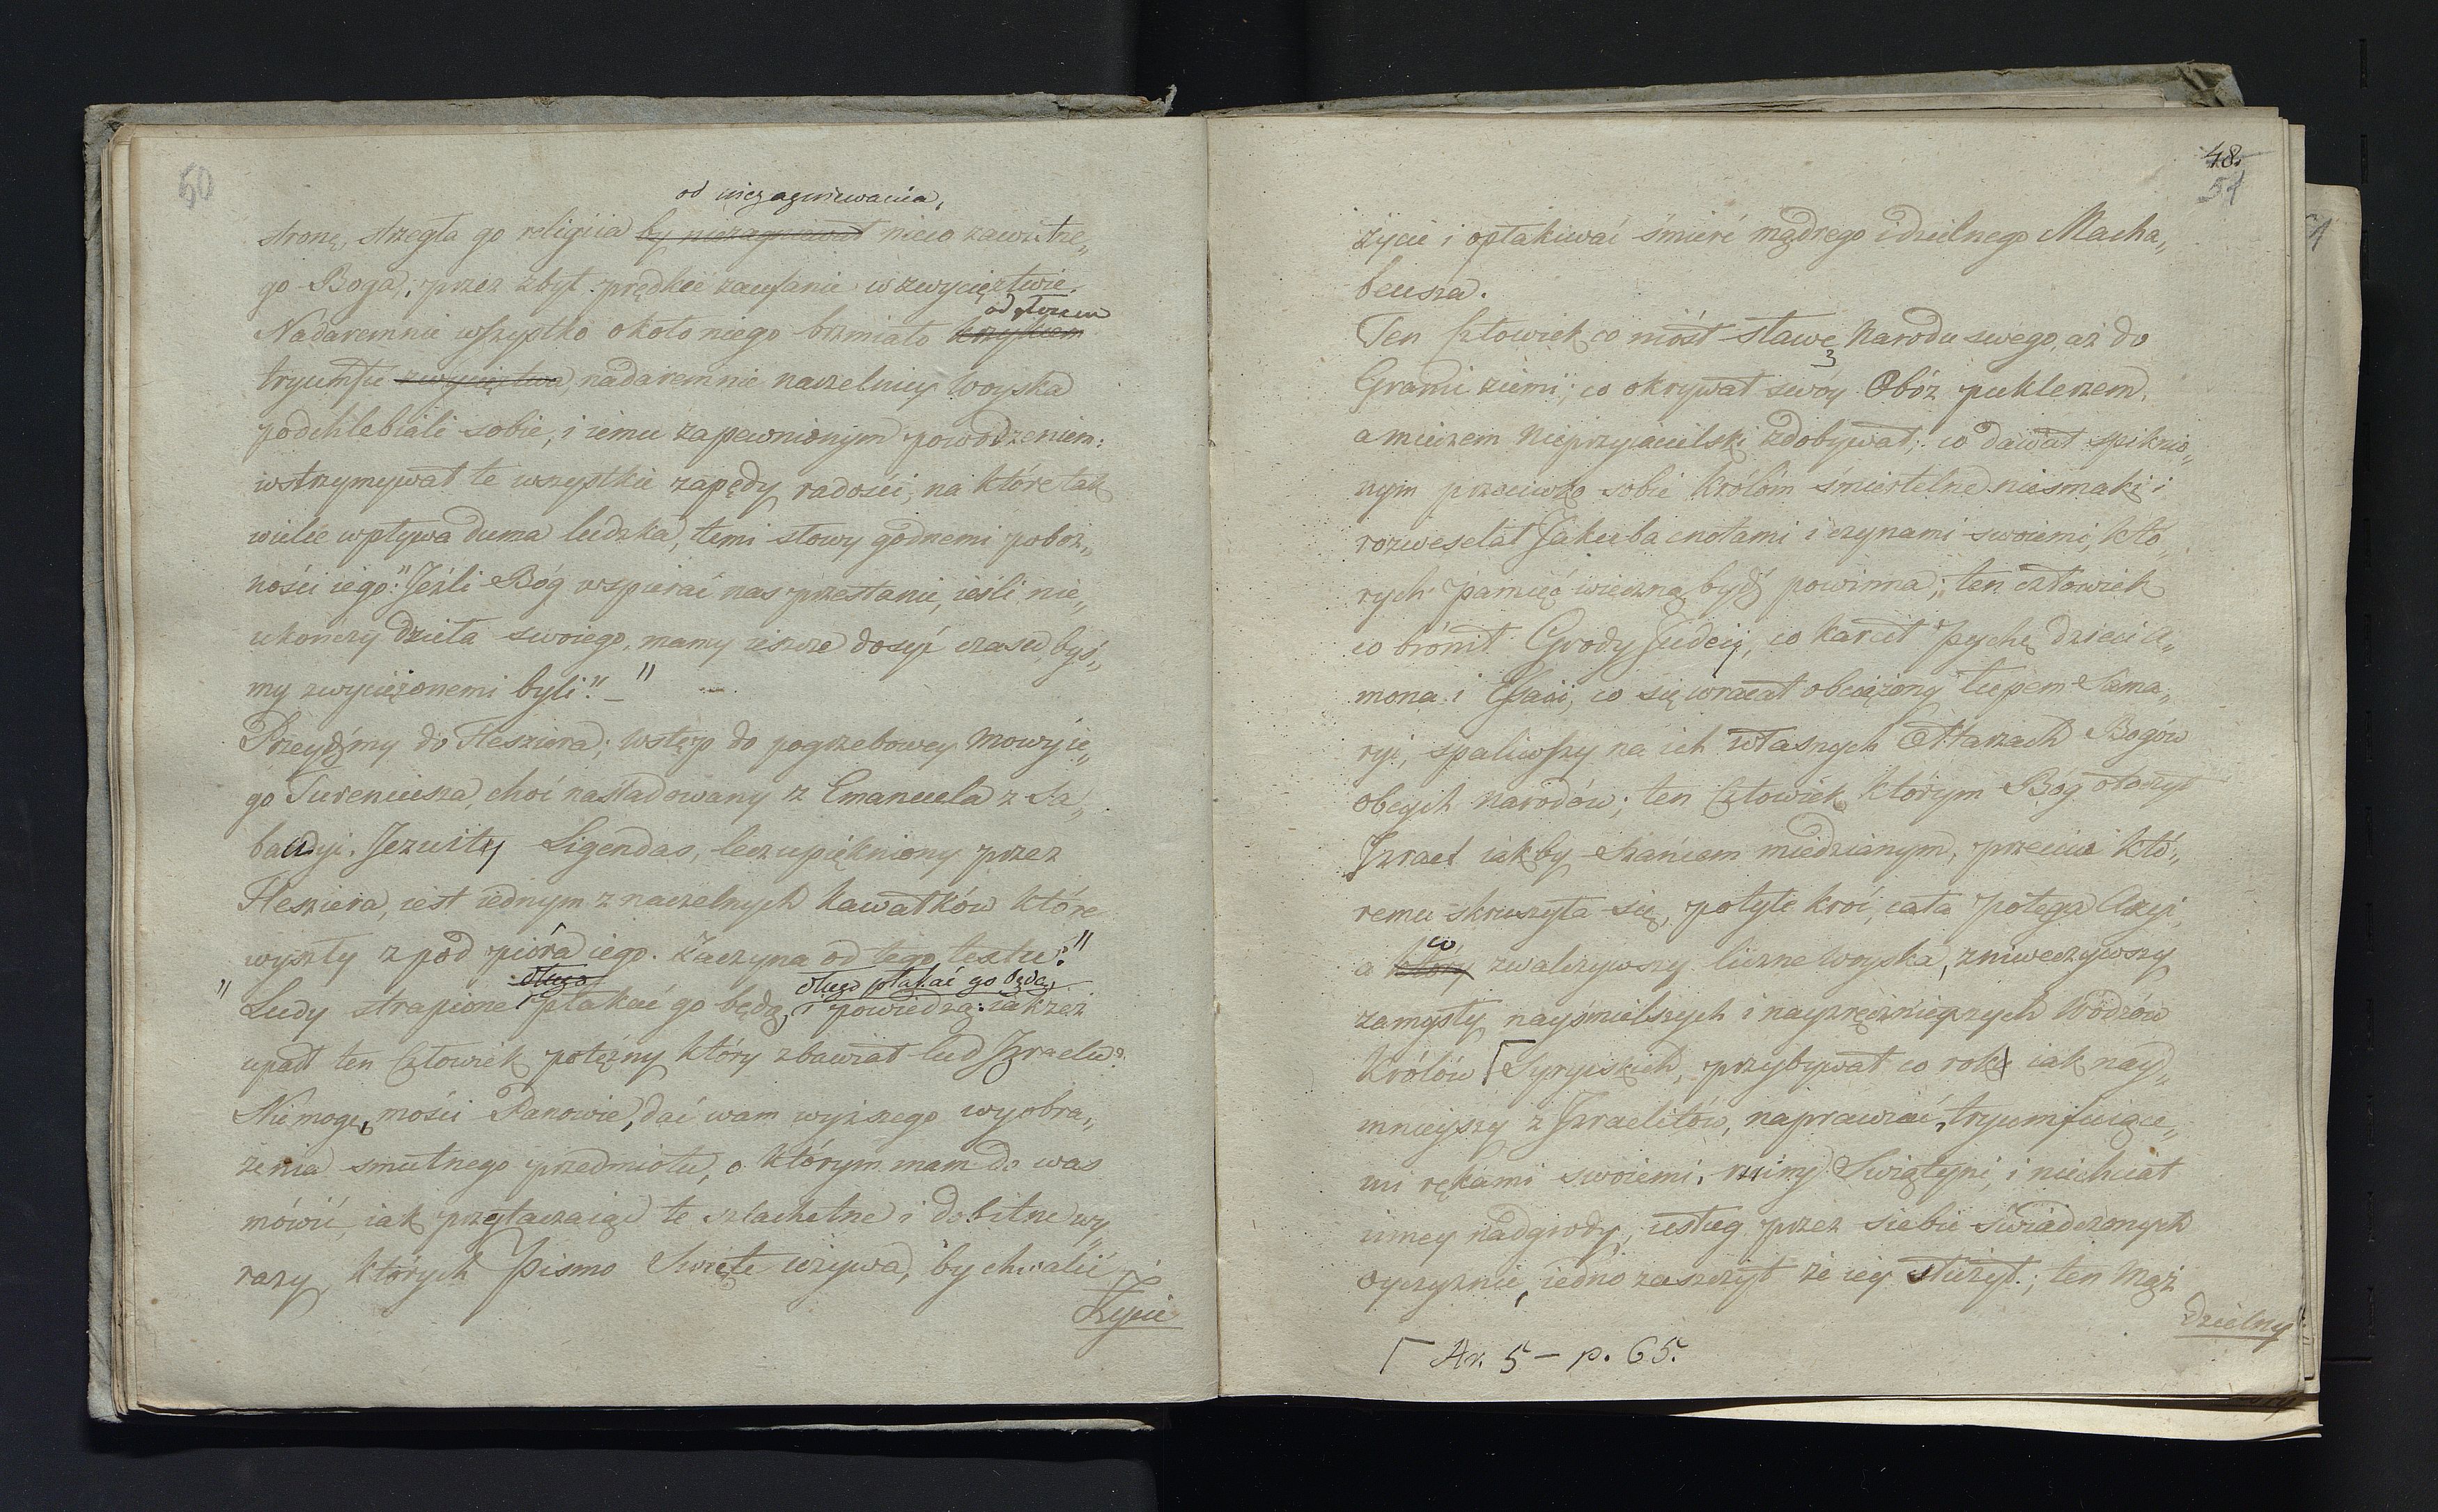 50
od niezagniewania,
stronę, strzegła go religiia by niezagniewał nieco zawistne„
go Boga, przez zbyt prędkie zaufanie w zwycięztwie.
odgłosem
Nadaremnie wszystko około niego brzmiało krzykiem
tryumfu zwycięztwa, nadaremnie naczelnicy woyska
podchlebiali sobie, i iemu zapewnionym powodzeniem:
wstrzymywał te wszystkie zapędy radości, na które tak
wiele wpływa duma ludzka, temi słowy godnemi poboż„
ności iego: "Jeźli Bóg wspierać nas przestanie, ieśli nie„
ukończy dzieła swoiego, mamy ieszcze dosyć czasu, byś„
my zwyciężonemi byli." — "
Przeydźmy do Flesziera; wstęp do pogrzebowey mowy ie„
go Tureniusza, choć naśladowany z Emanuela z Sa„
baudyi, Jezuity Ligendas, lecz upiękniony przez
Flesziera, iest iednym z naczelnych kawałków które
wyszły z pod pióra iego. Zaczyna od tego textu: "
długo długo płakać go będą,
" Ludy strapione płakać go będą, i powiedzą: iakżeż
upadł ten Człowiek potężny który zbawiał lud Izraelu?
Niemogę, mości Panowie, dać wam wyższego wyobra„
żenia smutnego przedmiotu, o którym mam do was
mówić, iak przytaczaiąc te szlachetne i dobitne wy„
razy, których Pismo Swięte używa, by chwalić
Życie
48.
51
życie i opłakiwać śmierć mądrego i dzielnego Macha„
beusza.
Ten Człowiek co niósł sławę Narodu swego, aż do
Granic ziemi; co okrywał swóy Obóz puklerzem,
a mieczem nieprzyiacielski zdobywał; co dawał spiknio„
nym przeciwko sobie Królom śmiertelne niesmaki i
rozweselał Jakuba cnotami i czynami swoiemi, któ„
rych pamięć wieczną bydź powinna; ten człowiek
co bronił Grody Judei, co karcił pychę dzieci A„
mona i Esaii, co się wracał obciążony łupem Sama„
ryi, spaliwszy na ich własnych Ołtarzach Bogów
obcych narodów; ten Człowiek którym Bóg otoczył
Izrael iakby szańcem miedzianym, przeciw któ„
remu skruszyła się, potyle kroć, cała potęga Azyi,
co
a który zwalczywszy liczne woyska, zniweczywszy
zamysły nayśmielszych i nayzręcznieyszych Wodzów
Królów ⌈Syryiskich, przybywał co roku iak nay„
mnieyszy z Izraelitów, naprawiać, tryumfuiące„
mi rękami swoiemi, ruiny Swiątyni, i niechciał
inney nadgrody, usług przez siebie świadczonych
oyczyznie, iedno zaszczyt że iey służył.; ten Mąż
dzielny
⌈ Ar. 5 — p. 65.
51